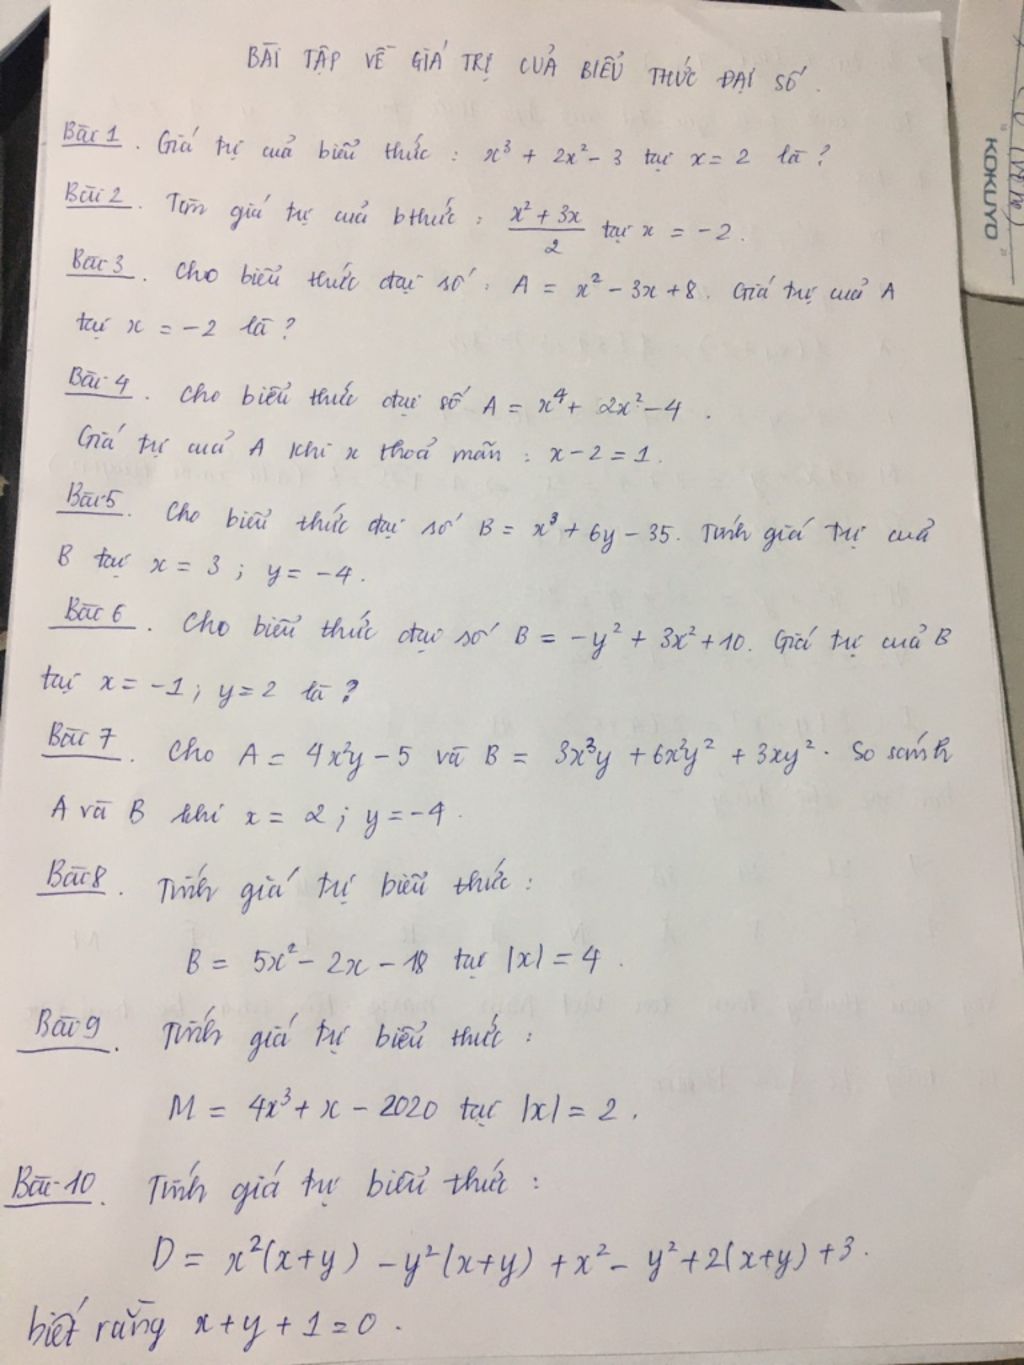 BÀI TẬP VỀ GIÁ TRỊ CỦA BIỂU THỨC ĐẠI SỐ.
Bài 1. Giá trị của biểu thức : x³ + 2x² - 3 tại x = 2 là ?
Bài 2. Tìm giá trị của bthức : (x² + 3x)/2 tại x = -2.
Bài 3. Cho biểu thức đại số : A = x² - 3x + 8. Giá trị của A
tại x = -2 là ?
Bài 4. Cho biểu thức đại số A = x⁴ + 2x² - 4.
Giá trị của A khi x thoả mãn : x - 2 = 1.
Bài 5. Cho biểu thức đại số B = x³ + 6y - 35. Tính giá trị của
B tại x = 3 ; y = -4.
Bài 6. Cho biểu thức đại số B = -y² + 3x² + 10. Giá trị của B
tại x = -1 ; y = 2 là ?
Bài 7. Cho A = 4x²y - 5 và B = 3x³y + 6x²y² + 3xy². So sánh
A và B khi x = 2 ; y = -4.
Bài 8. Tính giá trị biểu thức :
B = 5x² - 2x - 18 tại |x| = 4.
Bài 9. Tính giá trị biểu thức :
M = 4x³ + x - 2020 tại |x| = 2.
Bài 10. Tính giá trị biểu thức :
D = x²(x+y) - y²(x+y) + x² - y² + 2(x+y) + 3.
biết rằng x + y + 1 = 0.
"KOKUYO"